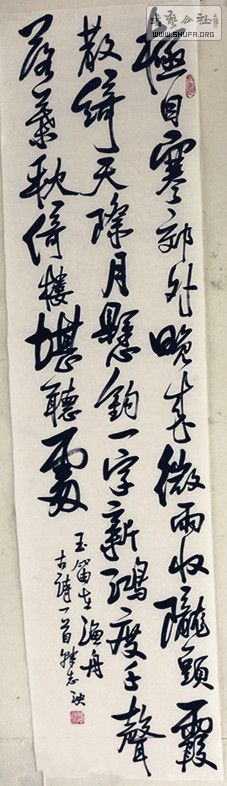 書藝公社
WWW.SHUFA.ORG
極目寒郊外晚来微雨收隴頭霞
散綺天際月懸鈎一字新鴻度千聲
落葉秋倚樓堪聽處
玉笛在漁舟
古詩一首